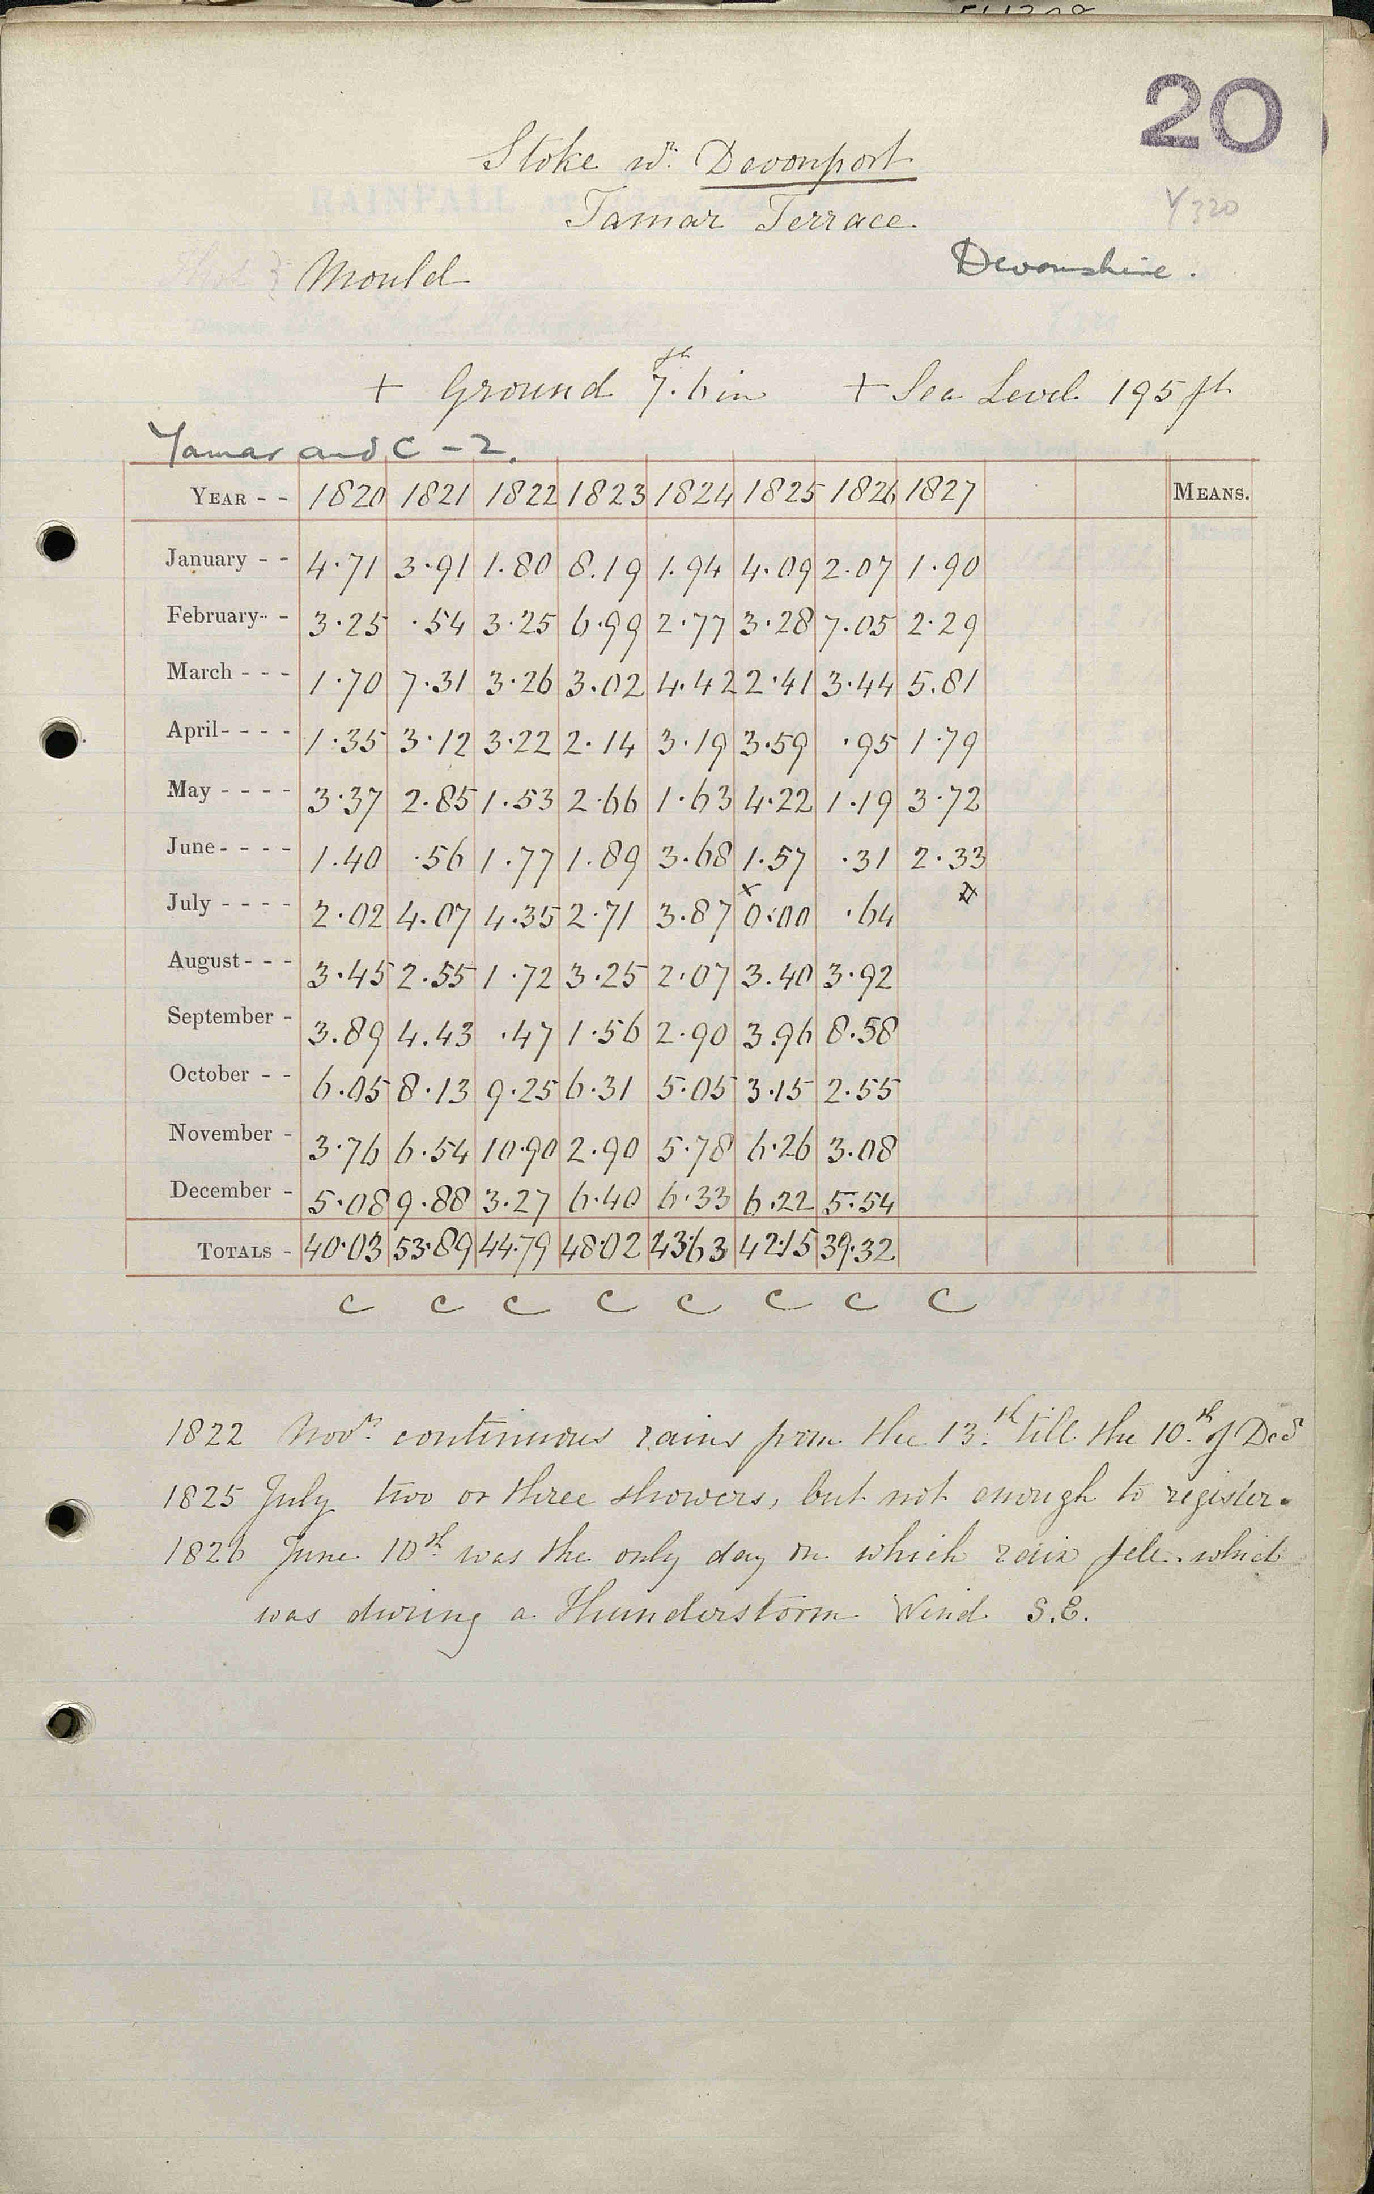 20
Stoke nr. Devonport
Tamar Terrace.
Y320
Mould
Devonshire.
+ Ground 7ft. 6in + Sea Level 195 ft
Tamar and C - 2.
YEAR - - 1820 1821 1822 1823 1824 1825 1826 1827 MEANS.
January - - 4.71 3.91 1.80 8.19 1.94 4.09 2.07 1.90
February - - 3.25 .54 3.25 6.99 2.77 3.28 7.05 2.29
March - - - 1.70 7.31 3.26 3.02 4.42 2.41 3.44 5.81
April - - - - 1.35 3.12 3.22 2.14 3.19 3.59 .95 1.79
May - - - - 3.37 2.85 1.53 2.66 1.63 4.22 1.19 3.72
June - - - - 1.40 .56 1.77 1.89 3.68 1.57 .31 2.33
July - - - - 2.02 4.07 4.35 2.71 3.87 x0.00 .64
August - - - 3.45 2.55 1.72 3.25 2.07 3.40 3.92
September - 3.89 4.43 .47 1.56 2.90 3.96 8.58
October - - 6.05 8.13 9.25 6.31 5.05 3.15 2.55
November - 3.76 6.54 10.90 2.90 5.78 6.26 3.08
December - 5.08 9.88 3.27 6.40 6.33 6.22 5.54
TOTALS - 40.03 53.89 44.79 48.02 43.63 42.15 39.32
C C C C C C C C
1822 Novr. continuous rains from the 13.th till the 10.th of Decr
1825 July two or three showers, but not enough to register.
1826 June 10th was the only day on which rain fell. which
was during a Thunderstorm Wind S.E.